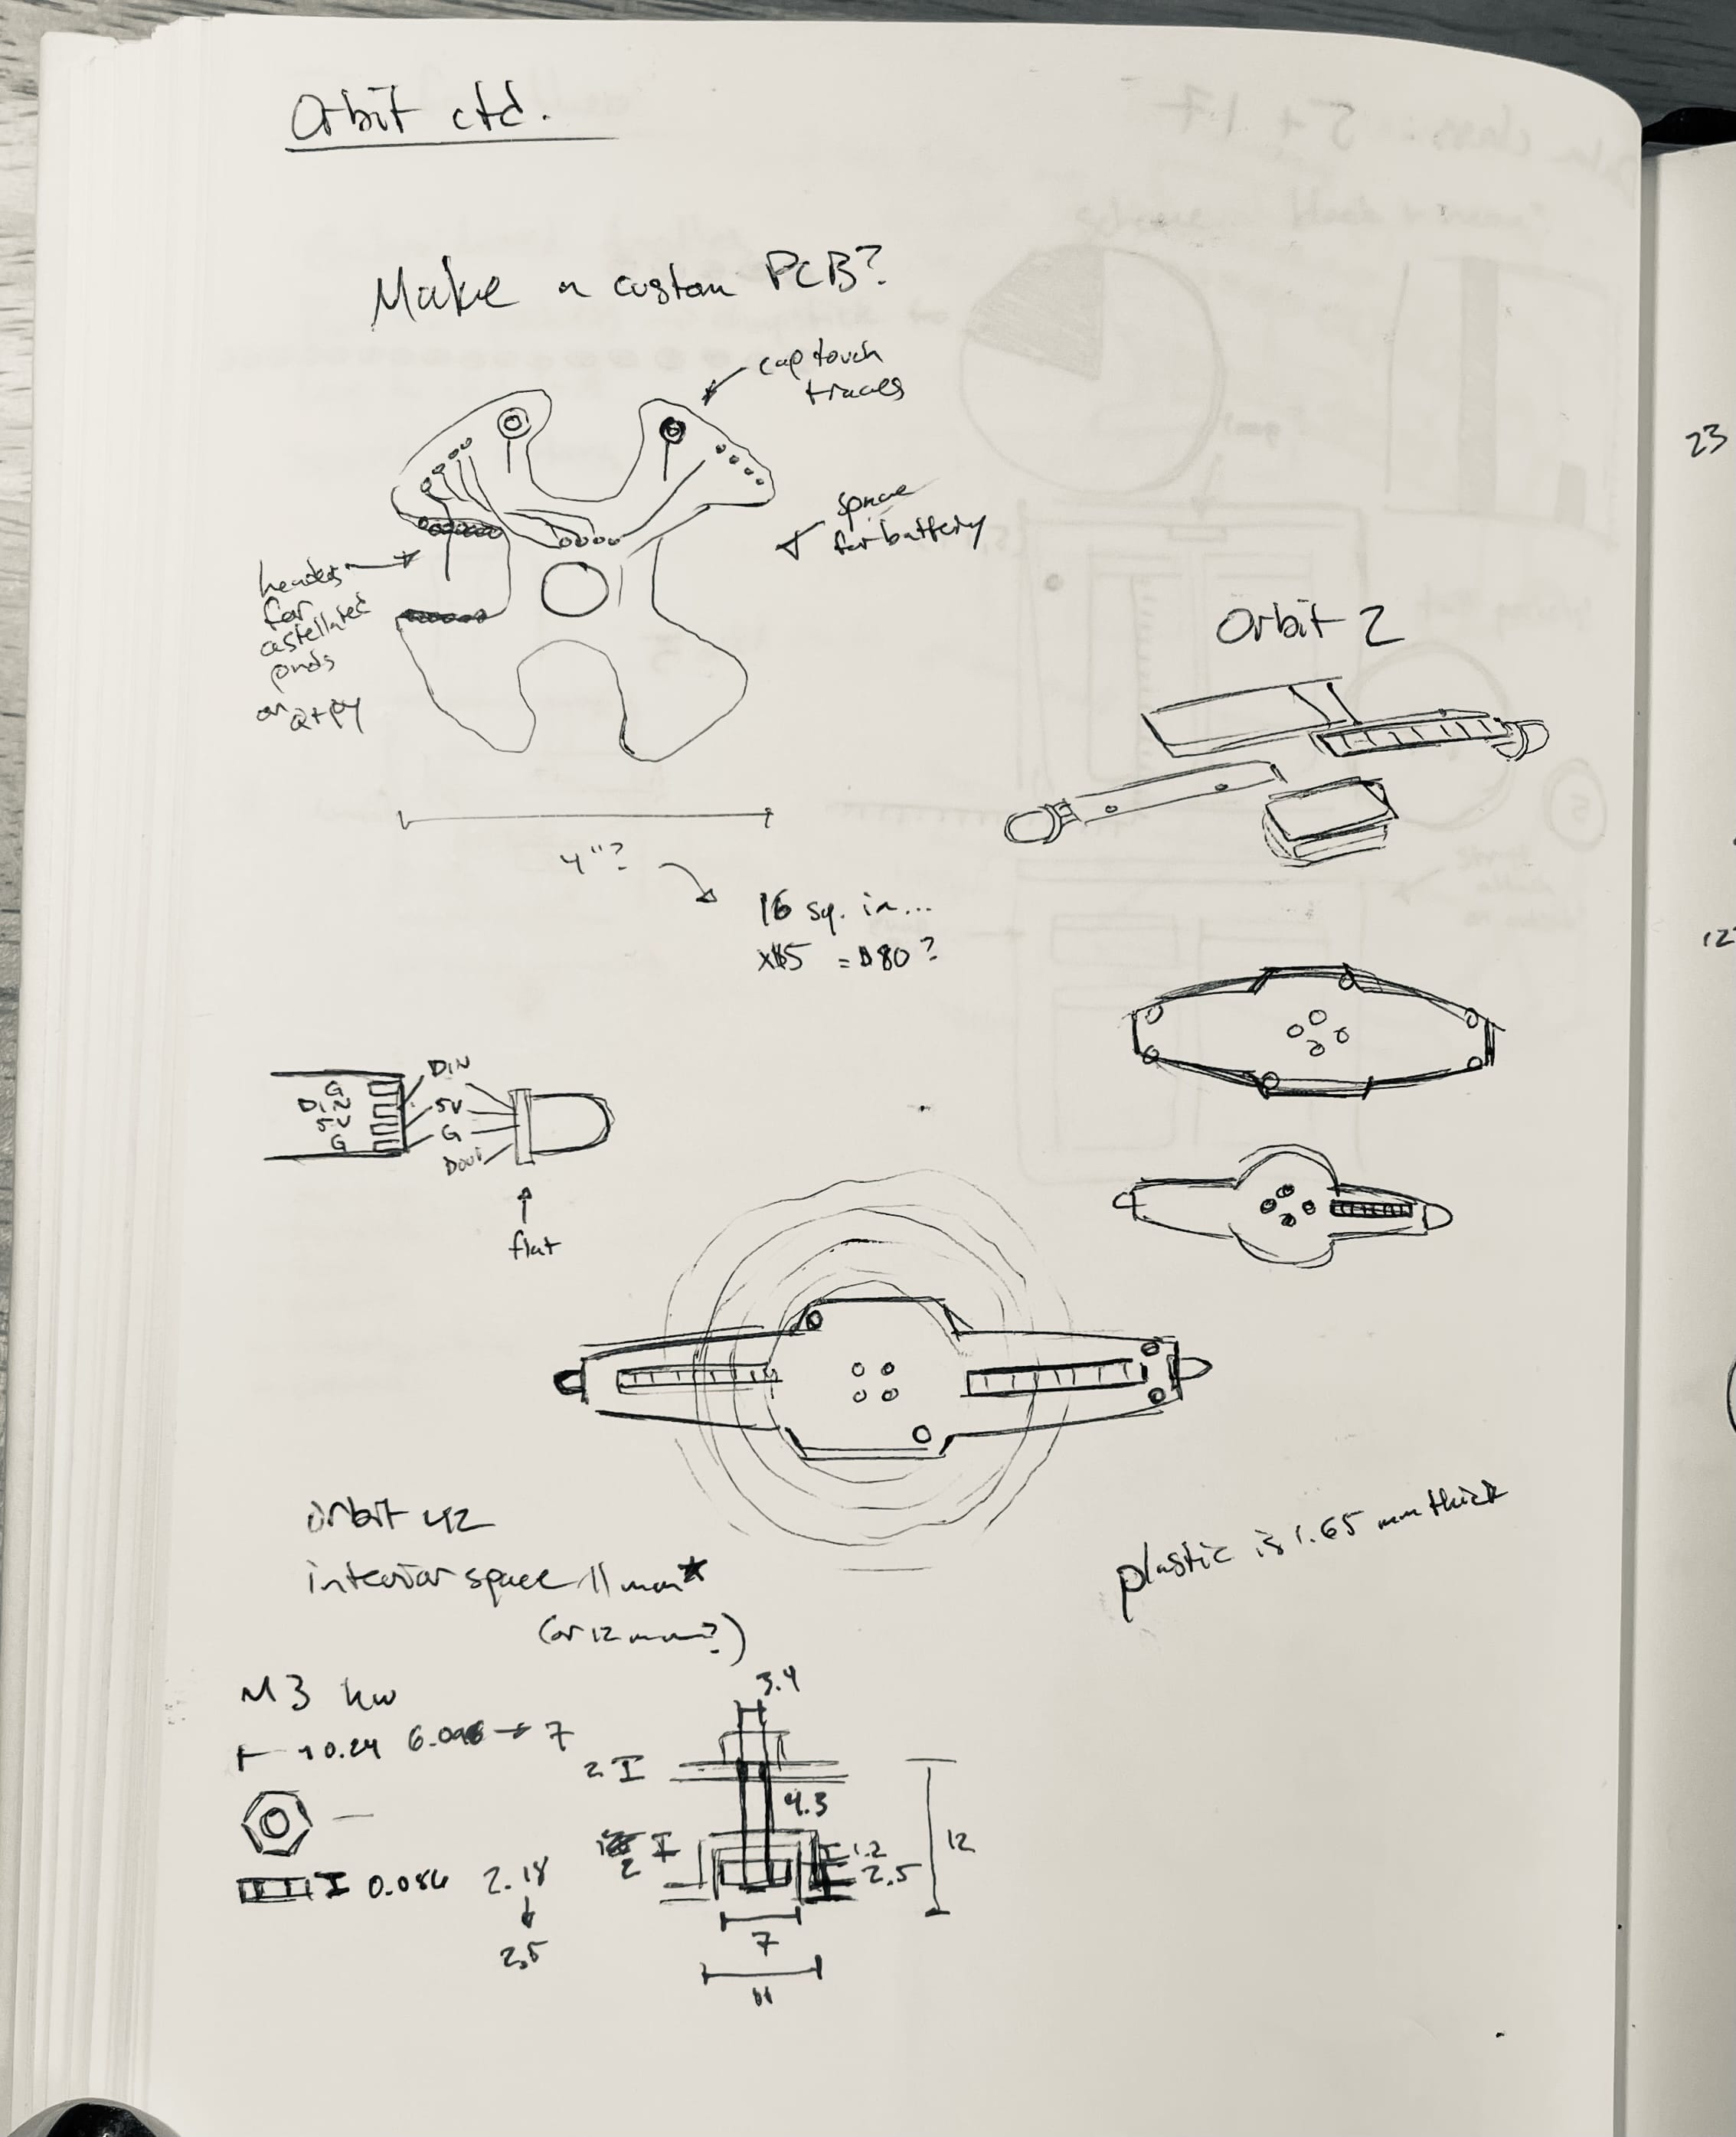 Orbit ctd.
Make a custom PCB?
cap touch
traces
space
for battery
headers
for
castellated
pads
on Qtpy
Orbit 2
4"?
16 sq. in...
x$5 = $80?
G
DIN
5V
G
DIN
5V
G
Dout
flat
orbit v2
interior space 11mm*
(or 12mm?)
plastic is 1.65 mm thick
M3 hw
0.24 6.096 → 7
0.086 2.18
2.5
3.4
2
4.3
2
1.2
2.5
12
7
11
23
12